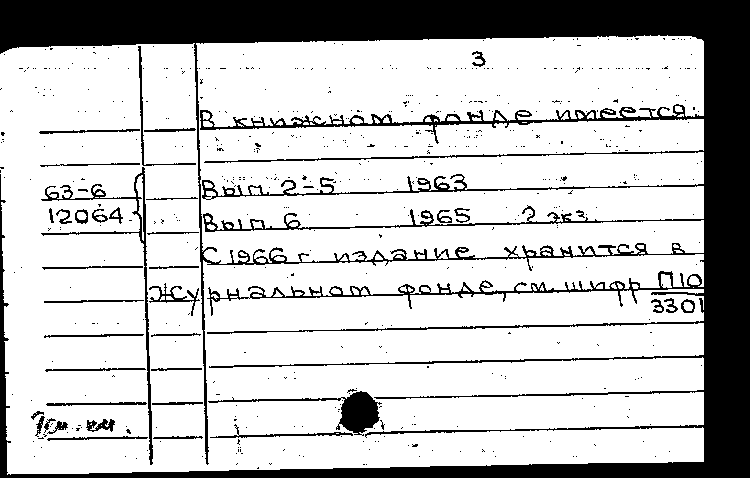 3
В книжном фонде имеется:
63-6 Вып. 2-5 1963
12064 Вып. 6 1965 2 экз.
С 1966 г. издание хранится в
журнальном фонде, см. шифр П10
3301